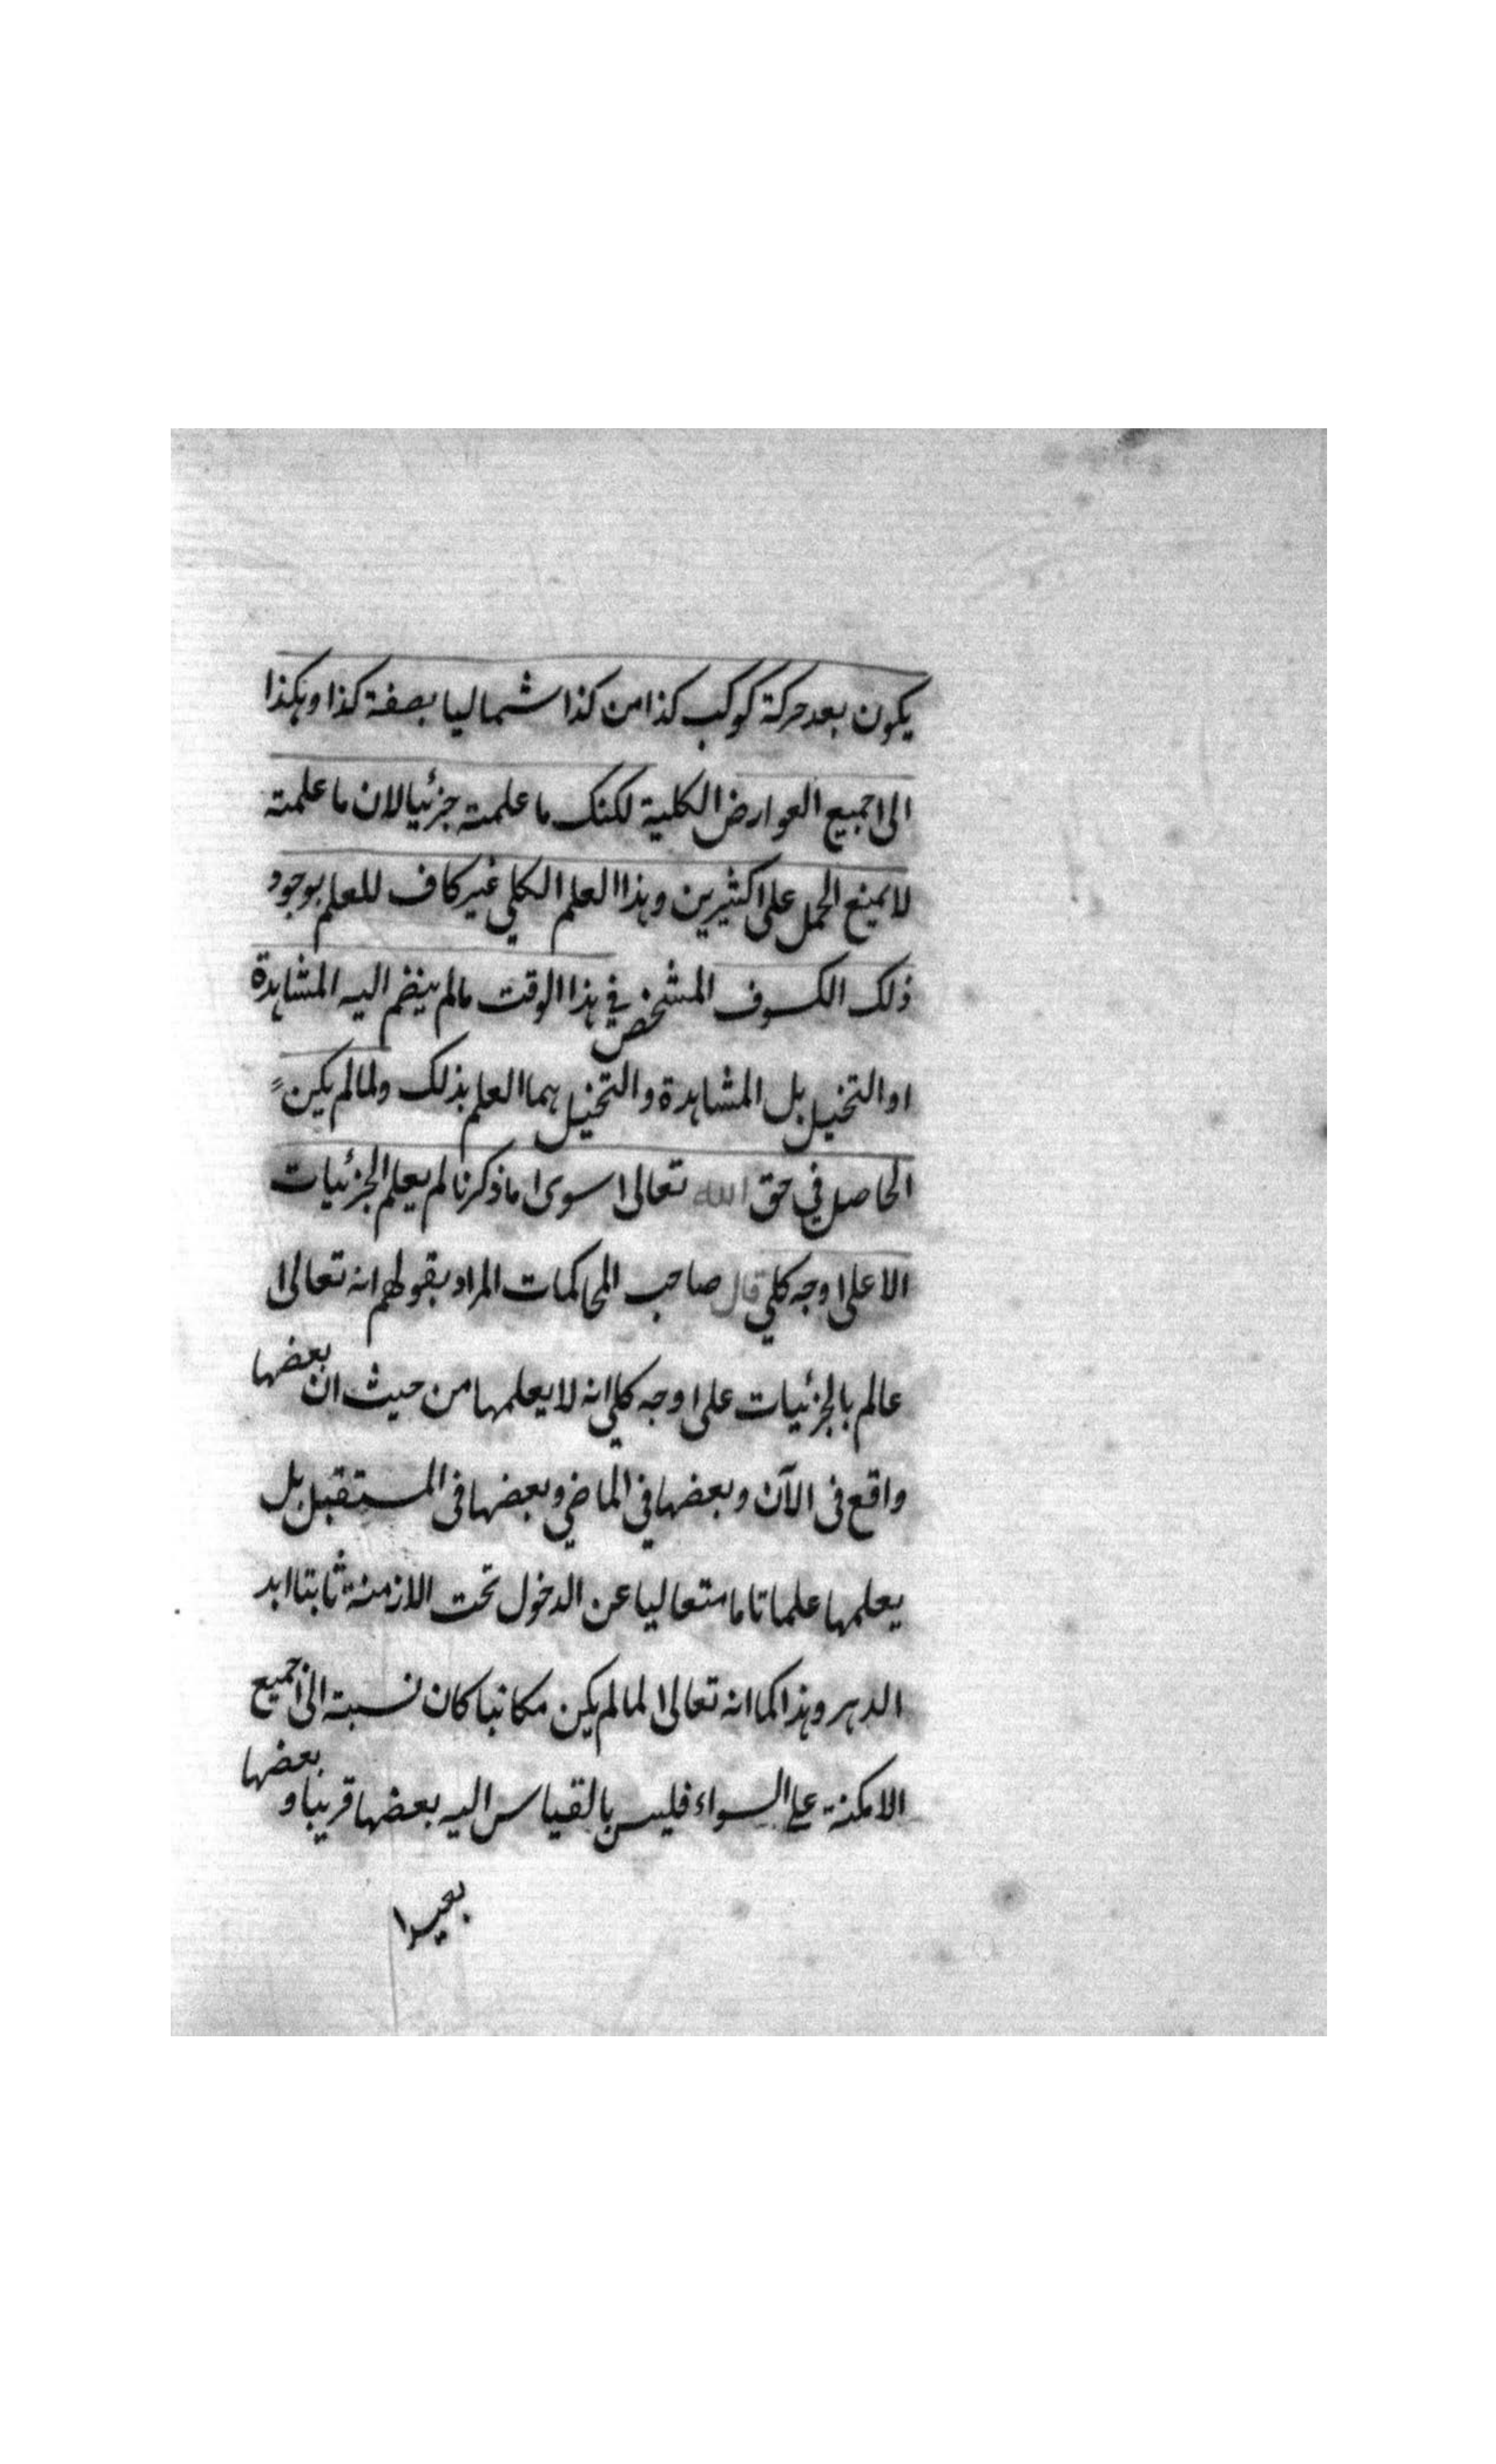 يكون بعد حركة كوكب كذا من كذا شماليا بصفة كذا وهكذا
الى جميع العوارض الكلية لكنك ما علمته جزئيا لان ما علمته
لا يمنع الحمل على كثيرين وهذا العلم الكلي غير كاف للعلم بوجود
ذلك الكسوف المشخص في هذا الوقت مالم ينضم اليه المشاهدة
او التخيل بل المشاهدة والتخيل هما العلم بذلك ولما لم يكن
الحاصل في حق الله تعالى سوى ما ذكرنا لم يعلم الجزئيات
الا على وجه كلي قال صاحب المحاكمات المراد بقولهم انه تعالى
عالم بالجزئيات على وجه كلي انه لا يعلمها من حيث ان بعضها
واقع فى الآن وبعضها في الماضي وبعضها فى المستقبل بل
يعلمها علما تاما متعاليا عن الدخول تحت الازمنة ثابتا ابد
الدهر وهذا كما انه تعالى لما لم يكن مكانيا كان نسبته الى جميع
الامكنة على السواء فليس بالقياس اليه بعضها قريبا و بعضها
بعيدا